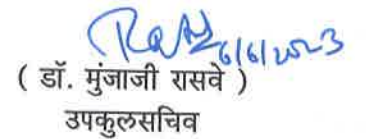 6/6/2023
( डॉ. मुंजाजी रासवे )
उपकुलसचिव